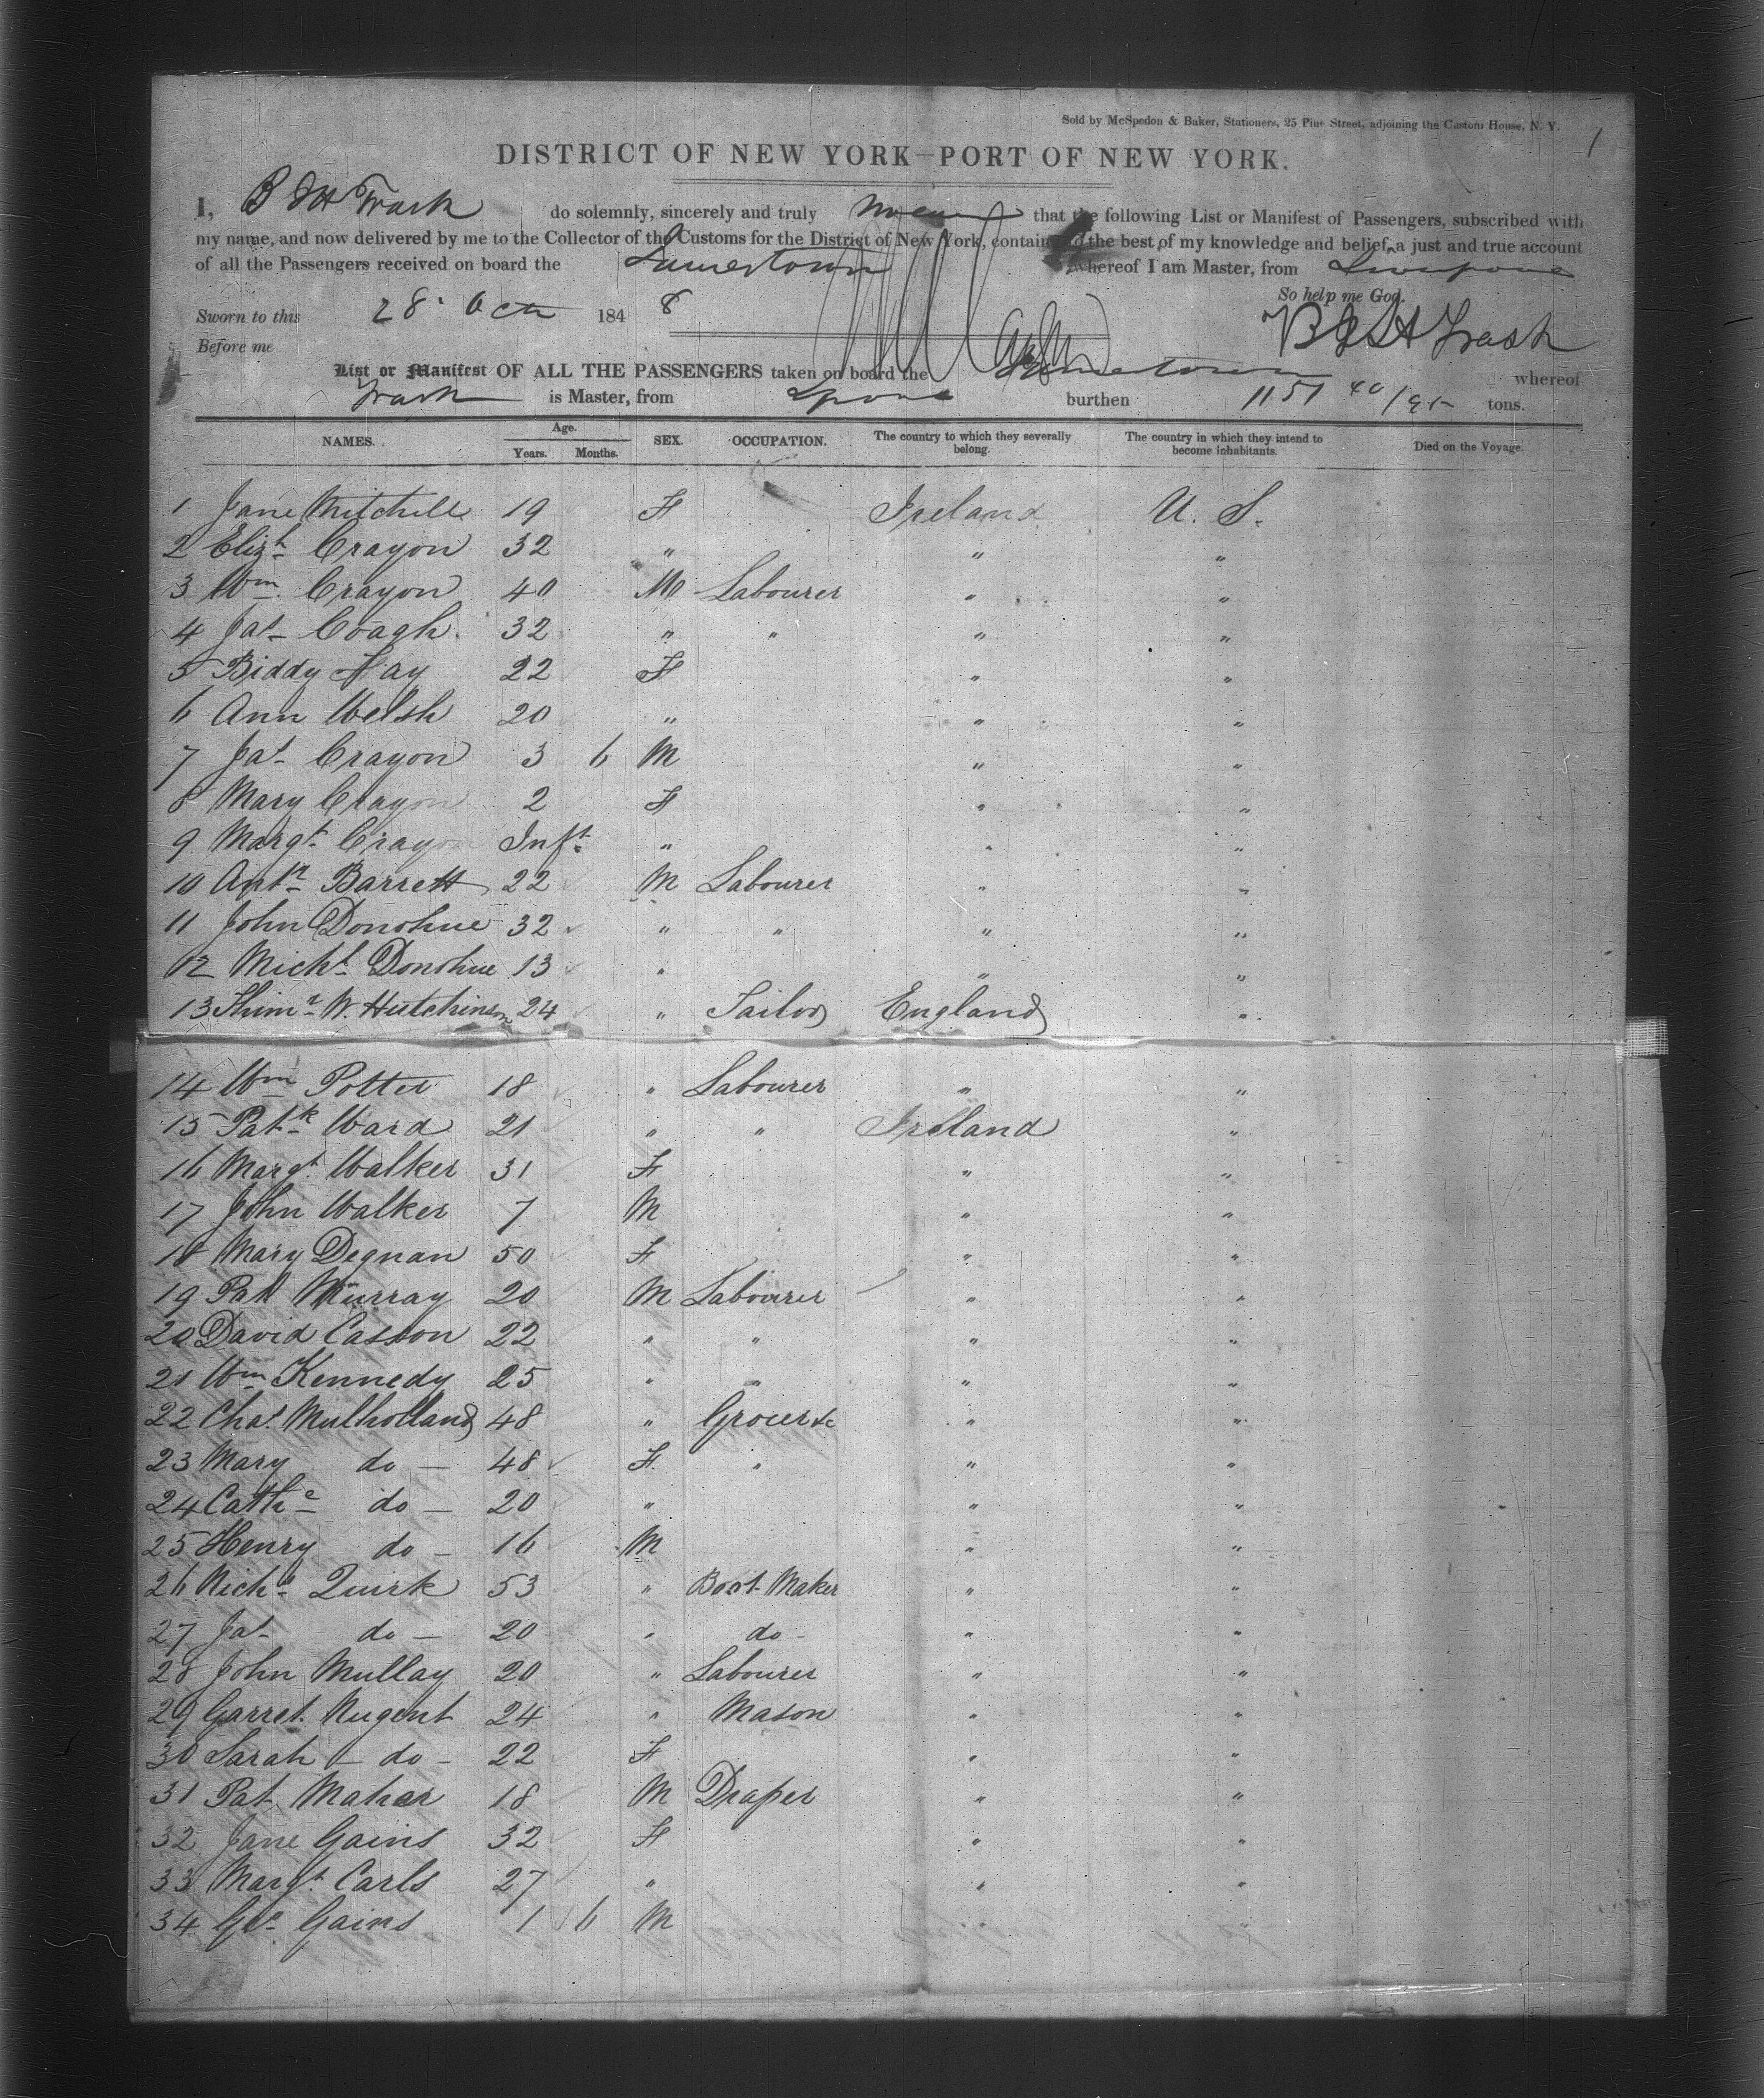 Sold by McSpedon & Baker, Stationers, 25 Pine Street, adjoining the Custom House, N. Y.
1
DISTRICT OF NEW YORK—PORT OF NEW YORK.
I, B J H Trask do solemnly, sincerely and truly swear that the following List or Manifest of Passengers, subscribed with
my name, and now delivered by me to the Collector of the Customs for the District of New York, contains to the best of my knowledge and belief, a just and true account
of all the Passengers received on board the Jamestown whereof I am Master, from Liverpool
So help me God.
Sworn to this 28. Oct 1848 B J H Trask
Before me
List or Manifest OF ALL THE PASSENGERS taken on board the Jamestown whereof
Trask is Master, from Lpool burthen 1151 40/95 tons.
NAMES. Age. Years. Months. SEX. OCCUPATION. The country to which they severally belong. The country in which they intend to become inhabitants. Died on the Voyage.
1 Jane Mitchell 19 F Ireland U. S.
2 Elizh Crayon 32 " " "
3 Wm. Crayon 40 M Labourer " "
4 Jas Coagh 32 " " " "
5 Biddy Hay 22 F " "
6 Ann Welsh 20 " " "
7 Jas Crayon 3 6 M " "
8 Mary Crayon 2 F " "
9 Margt Crayon Inft " " "
10 Anty Barrett 22 M Labourer " "
11 John Donohue 32 " " " "
12 Michl Donohue 13 " " "
13 W. Hutchinson 24 " Tailor England "
14 Wm Potter 18 " Labourer " "
15 Patk Ward 21 " " Ireland "
16 Margt Walker 31 F " "
17 John Walker 7 M " "
18 Mary Degnan 50 F " "
19 Pat Murray 20 M Labourer " "
20 David Casson 22 " " " "
21 Wm Kennedy 25 " " " "
22 Chas Mulholland 48 " Grocer &c " "
23 Mary do — 48 F. " " "
24 Cathe do — 20 " " "
25 Henry do — 16 M " "
26 Richd Quirk 53 " Boot Maker " "
27 Jas do — 20 " do - " "
28 John Mullay 20 " Labourer " "
29 Garret Nugent 24 " Mason " "
30 Sarah — do — 22 F " "
31 Pat Mahar 18 M Draper " "
32 Jane Gains 32 F " "
33 Margt Carls 27 " " "
34 Geo Gains 1 6 M "